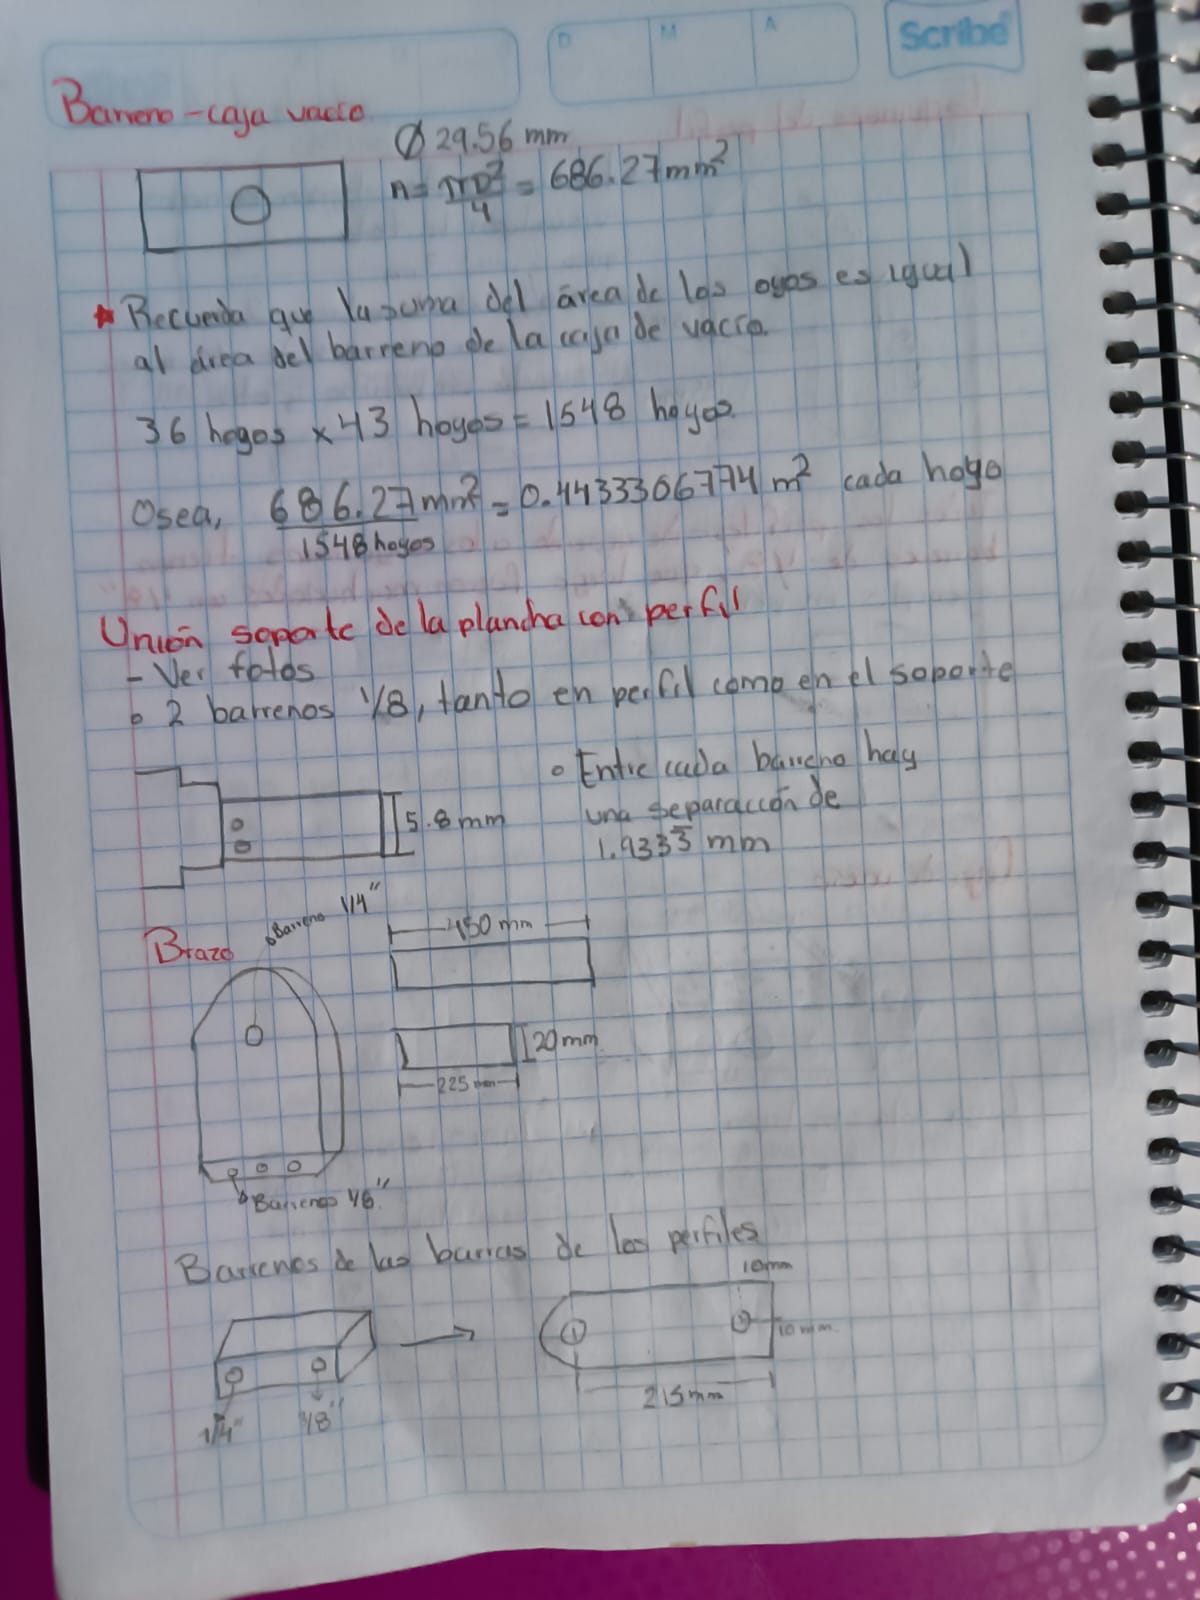 D M A Scribe
Barreno - caja vacío
Ø 29.56 mm
n = πD²/4 = 686.27 mm²
* Recuerda que la suma del área de los oyos es igual
al área del barreno de la caja de vacío.
36 hoyos x 43 hoyos = 1548 hoyos.
Osea, 686.27 mm²/1548 hoyos = 0.4433306774 m² cada hoyo
Unión soporte de la plancha con perfil
- Ver fotos
o 2 barrenos 1/8, tanto en perfil como en el soporte
o Entre cada barreno hay
una separacción de
1.9333 mm
5.8 mm
Brazo
Barreno 1/4"
450 mm
20 mm
225 mm
Barrenos 1/8"
Barrenos de las barras de los perfiles
10mm
10mm
215mm
1/4" 1/8"